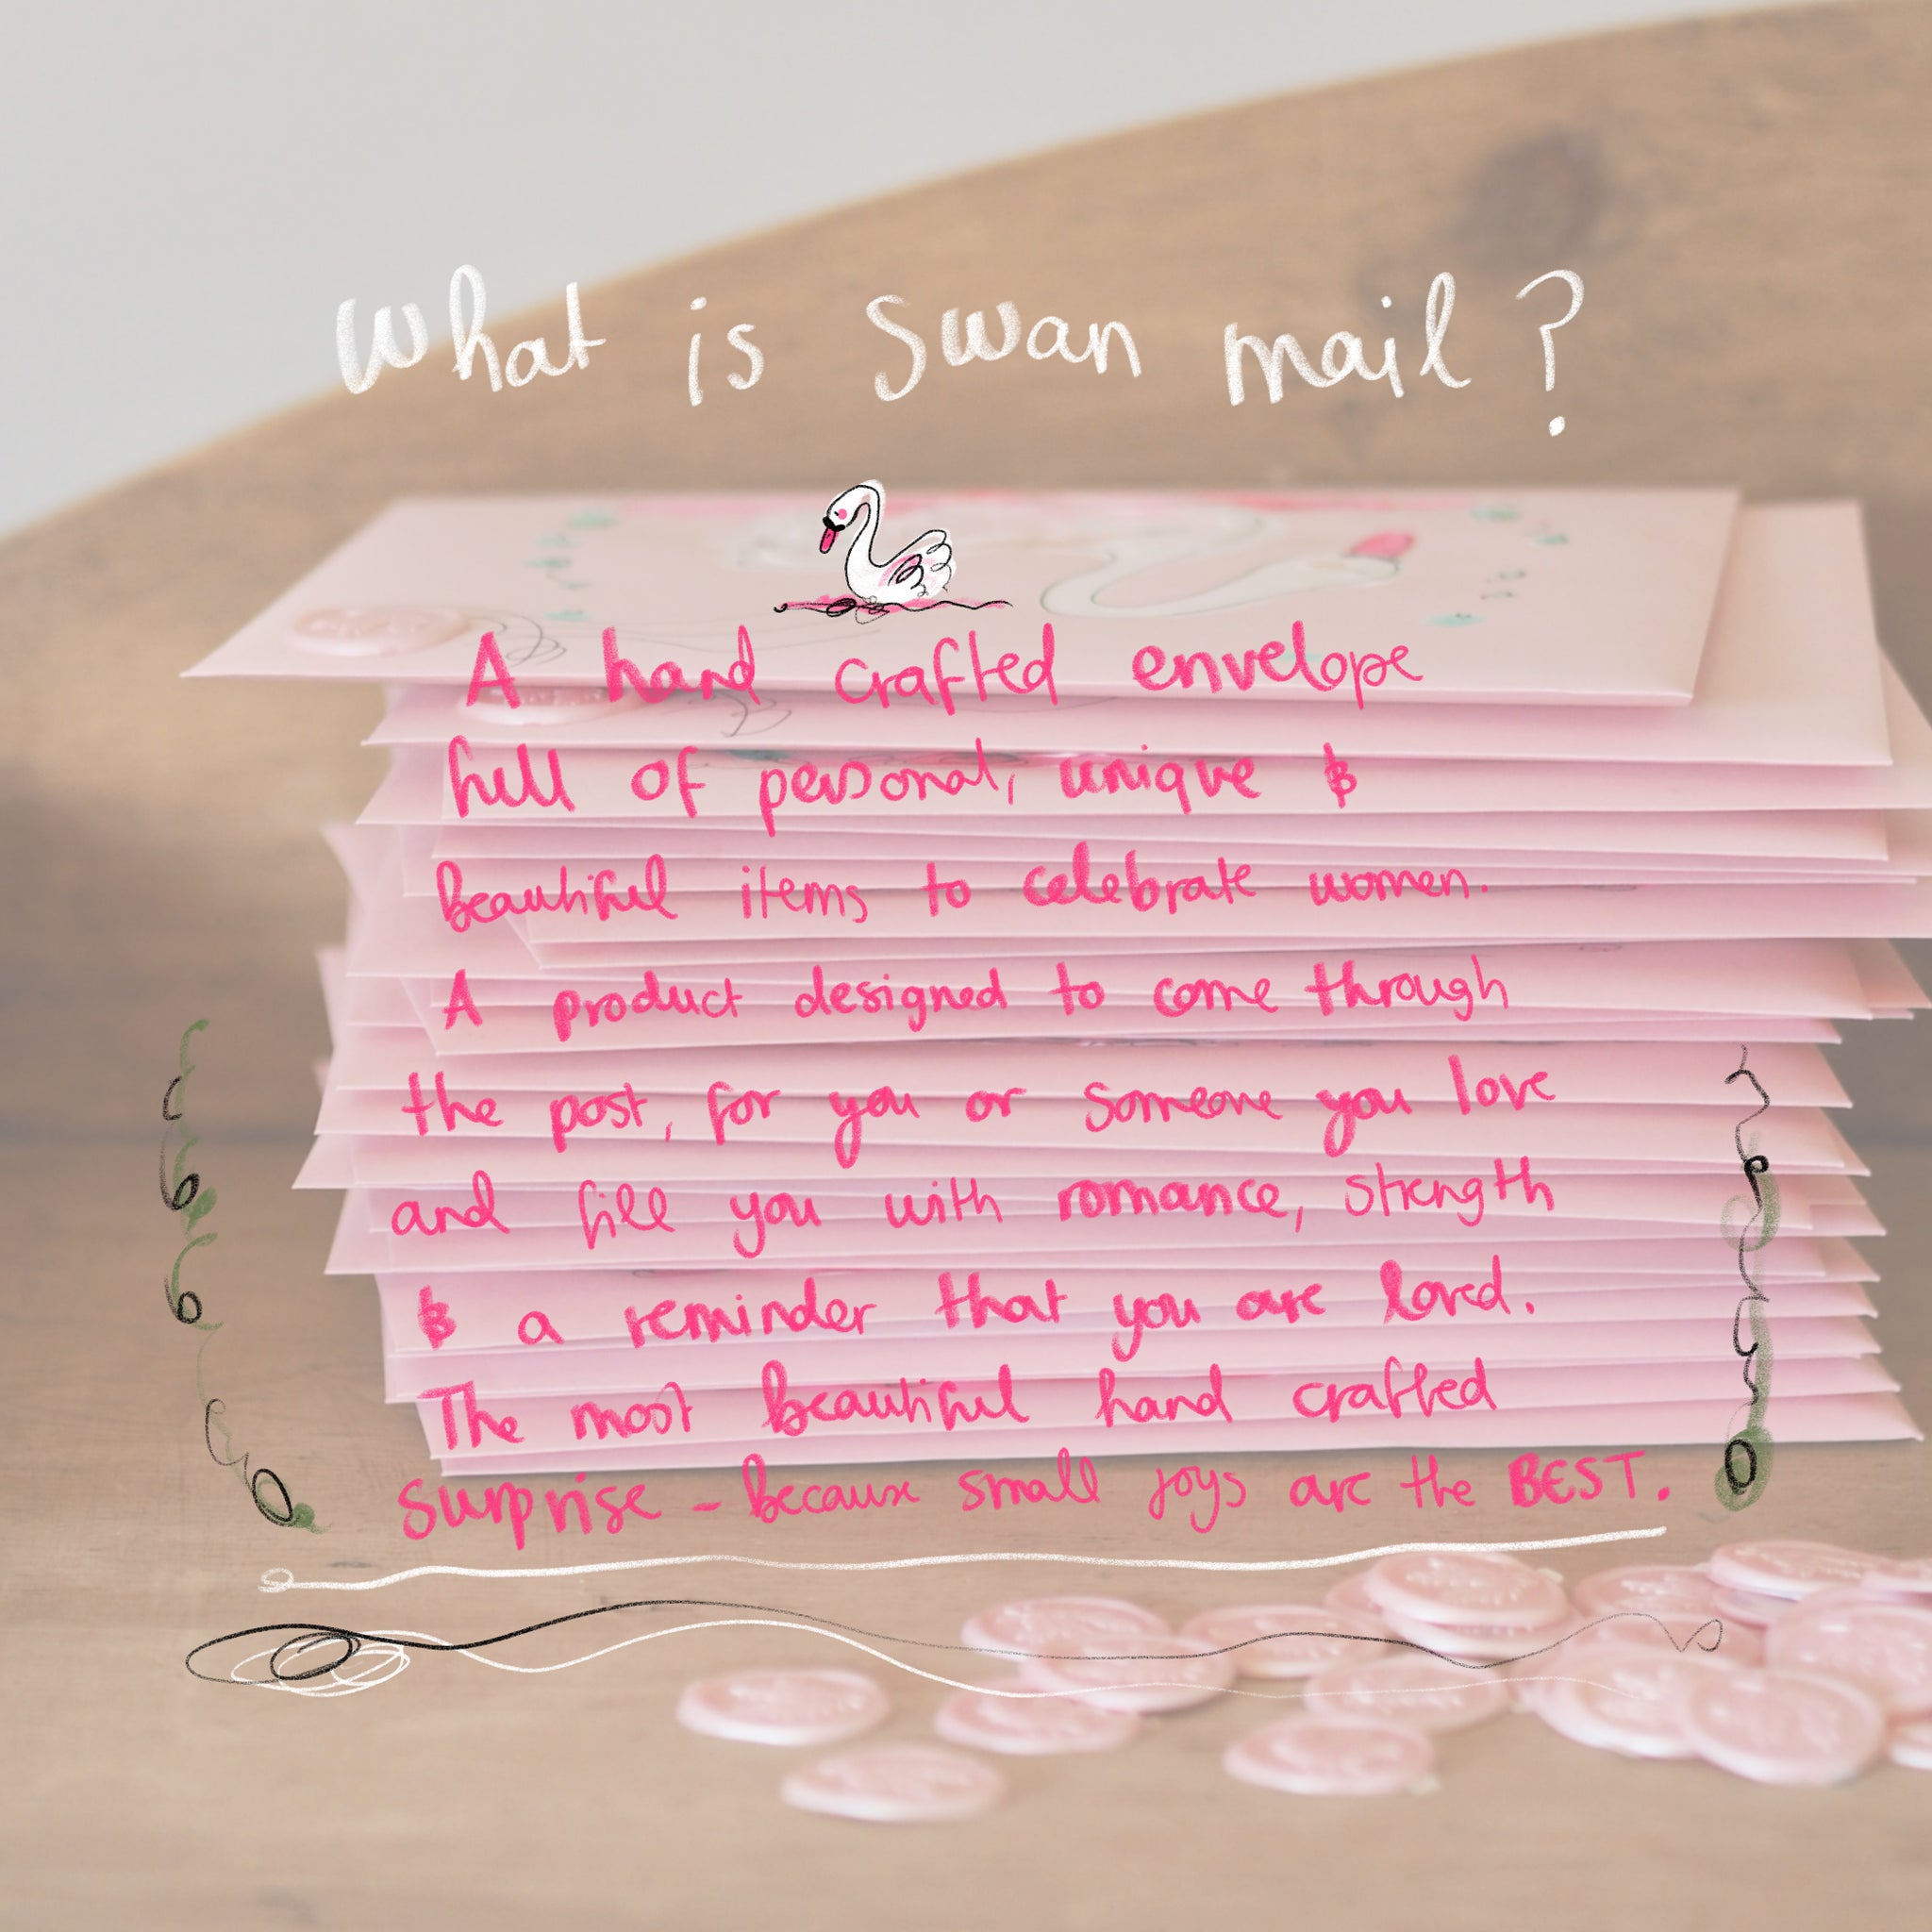 What is Swan mail?
A hand crafted envelope
full of personal, unique &
beautiful items to celebrate women.
A product designed to come through
the post, for you or someone you love
and fill you with romance, strength
& a reminder that you are loved.
The most beautiful hand crafted
surprise - because small joys are the BEST.